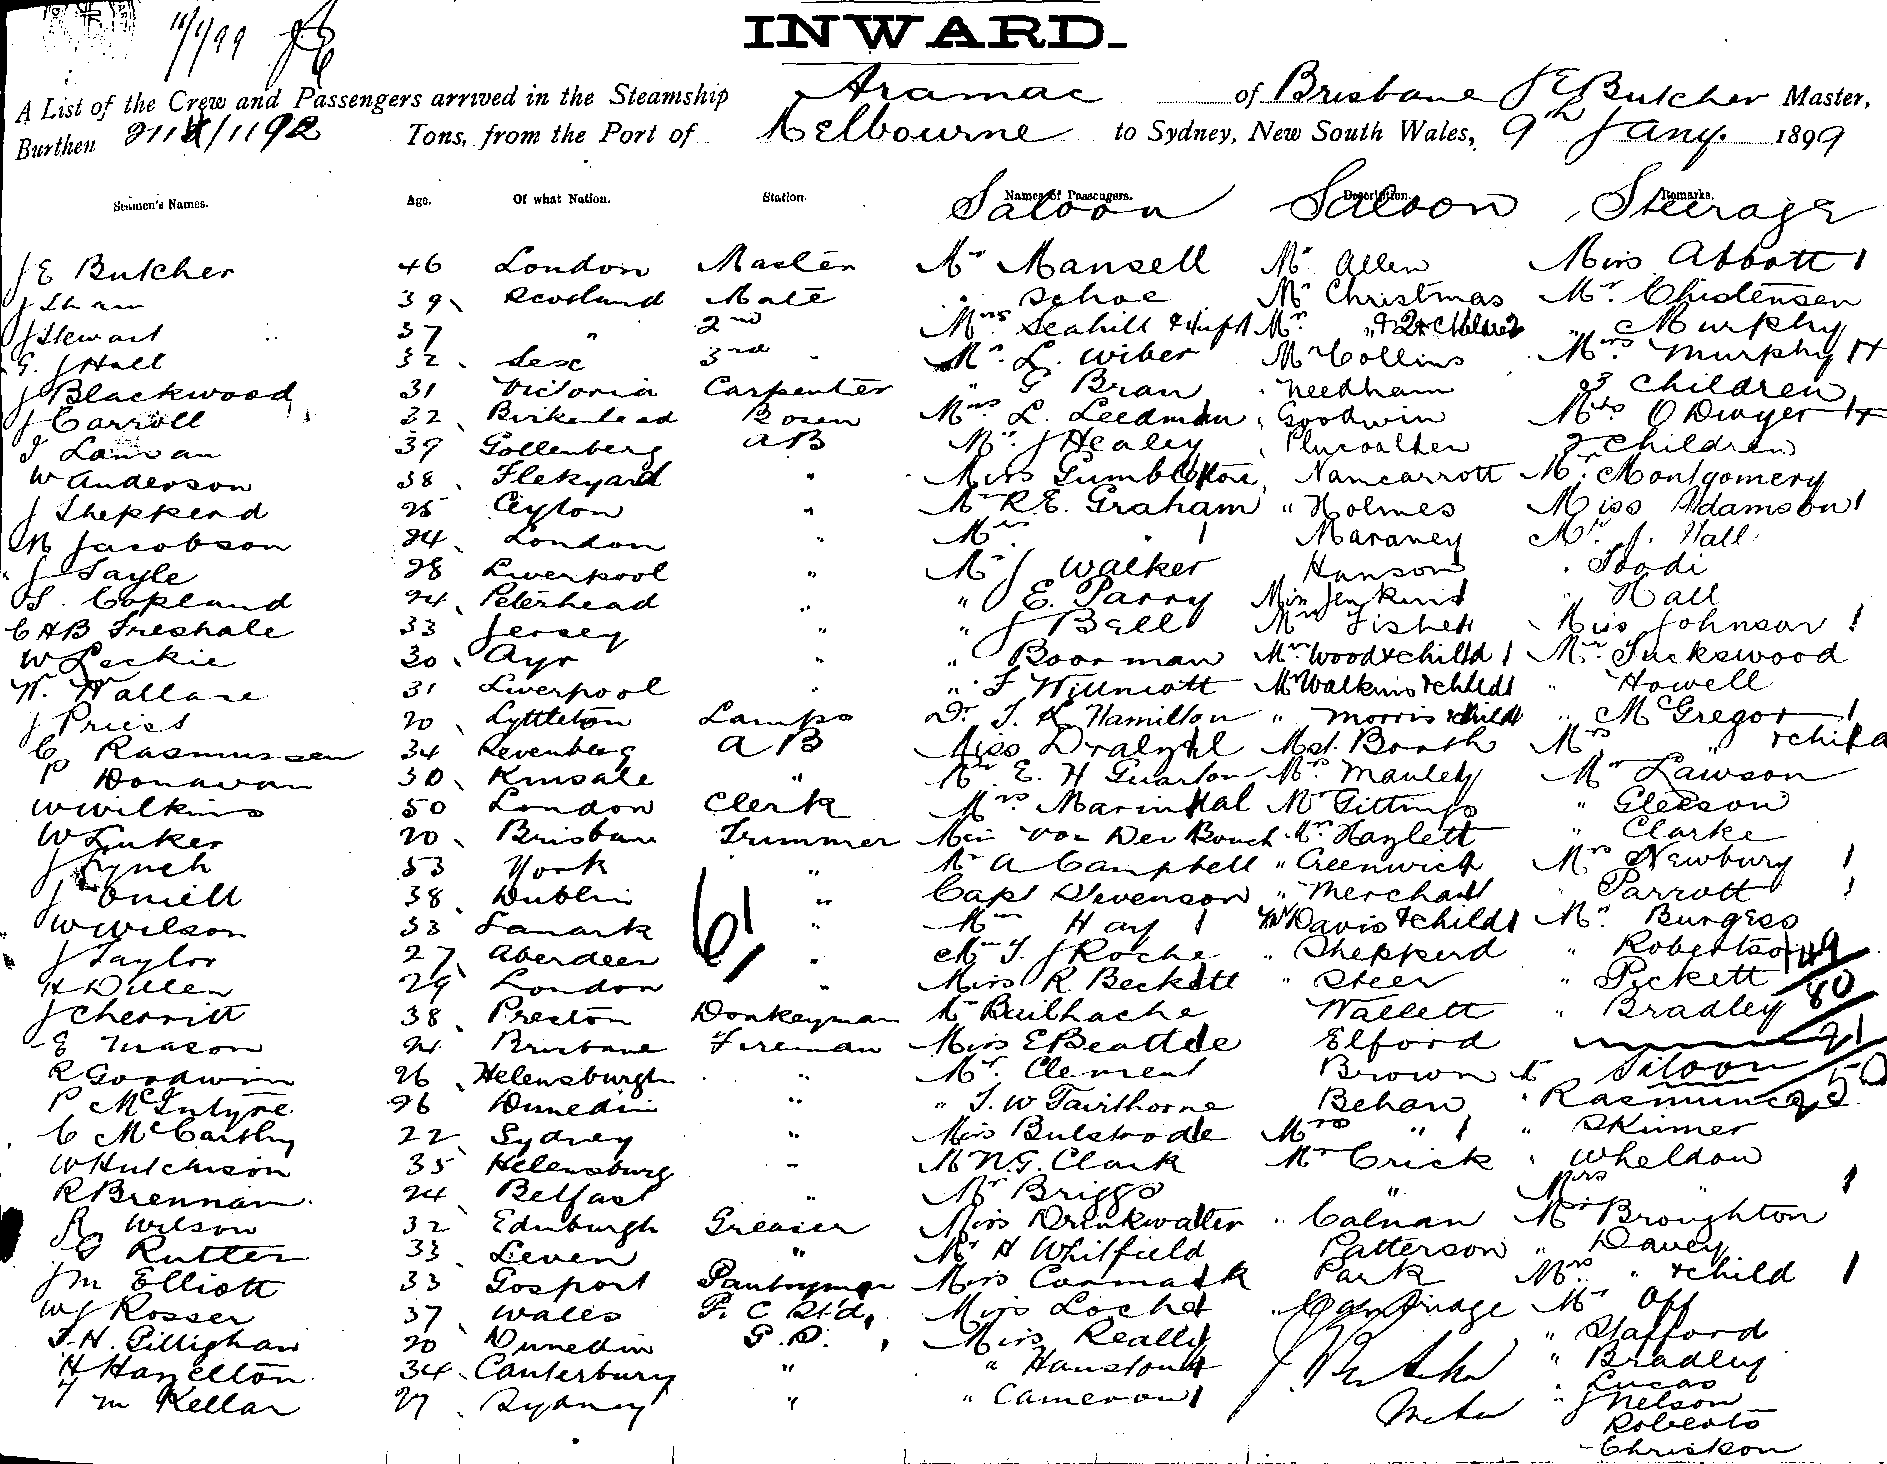 11/1/99
INWARD.
A List of the Crew and Passengers arrived in the Steamship Aramac of Brisbane J E Butcher Master,
Burthen 2114/1192 Tons, from the Port of Melbourne to Sydney, New South Wales, 9th Jany. 1899
Seamen's Names. Age. Of what Nation. Station. Names of Passengers. Description. Remarks.
Saloon Saloon Steerage
J E Butcher 46 London Master Mr Mansell Mr Allen Miss Abbott 1
39 Scotland Mate " Mr Christmas Mr Christensen
J Stewart 37 " 2nd Mrs Mrs " & 2 children " Murphy
G. J Hall 32 3rd " Mr. L. Wiber Mr Collins Mrs Murphy 1 +
J Blackwood 31 Victoria Carpenter " G Bran " Needham 3 children
J Carroll 32 Birkenhead Bosen Mrs L. Leedman " Goodwin Mrs O Dwyer 1 +
39 Gollenberg AB Mr. J Healey 2 children
W Anderson 38 Flekyard " Miss Gumbleton Nancarrott Mr. Montgomery
J Shepperd 25 Ceylon " Mr R.E. Graham " Holmes Miss Adamson 1
M Jacobson 24 London " Mrs " 1 Maraney Mr. J. Hall
J Sayle 28 Liverpool " Mr J Walker Hanson "
S. Copland 24 Peterhead " " E. Parry Miss Jenkins " Hall
C H B Freshale 33 Jersey " " J Ball Mrs Fisher Miss Johnson 1
W Leckie 30 Ayr " " Boorman Mrs Wood & child 1 Mr. Tuckswood
W. Wallace 31 Liverpool " " F Willmott Mr Watkins & child " Howell
J Priest 20 Lyttleton Lamps Dr. T. K. Hamilton " Morris & child " McGregor 1
C Rasmussen 34 AB Miss Mst. Booth Mrs " & child
P Donavan 30 Kinsale " Mr. E. H Mrs Manley Mr Lawson
W Wilkins 50 London Clerk Mrs Mr Gittings " Gleeson
20 Brisbane Trimmer Miss Von Der Mr. Hazlett " Clarke
J Lynch 53 York " Mr A Campbell " Greenwich Mrs Newbury 1
J Oneill 38 Dublin " Capt Devenson " Merchant " Parrott 1
W Wilson 33 Lanark " Mrs Hay 1 Mr Davis & child Mr. Burgess
J Taylor 27 Aberdeen " Mr T. J Roche " Shepperd " Robertson 49
H Dillen 29 London " Miss R Beckett " Steer " Pickett 80
J Cherritt 38 Preston Donkeyman Mr Bailhache Wallett " Bradley
E Mason 21 Brisbane Fireman Miss E Beattie Elford 21
R Goodwin 26 Helensburgh " Mr. Clement Brown Saloon 50
P McIntyre 26 Dunedin " " T. W Fairthorne Behan
C McCarthy 22 Sydney " Miss Bulstrode Mrs " 1 " Skinner
W Hutchison 35 Helensburg " Mr N. G. Clark Mr Crick " Wheldon
R Brennan 24 Belfast " Mr Briggs " Mrs " 1
R Wilson 32 Edinburgh Greaser Miss Drinkwater " Calnan Mr Broughton
G Rutter 33 Leven " Mr H Whitfield Patterson " Davey
J M Elliott 33 Gosport Pantryman Miss Cormack Park Mrs. " & child 1
W J Rosser 37 Wales F. C. Std. Miss " Mr Off
T. H. Gillighan 20 Dunedin G.S. Miss Really " Stafford
H Hazelton 34 Canterbury " " Houston " Bradley
Kellar 27 Sydney " " Cameron 1 " Lucas
61
J Butcher
Master
" J Nelson
Roberts